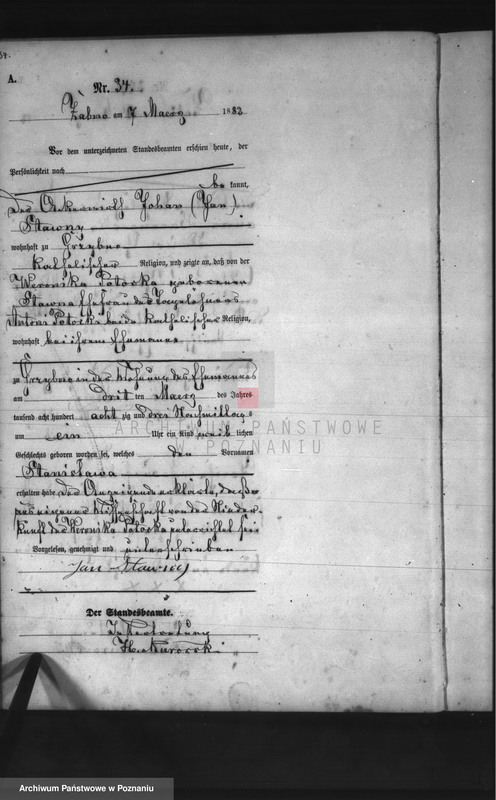 A.
Nr. 34.
Żabno am 7 Maerz 1883
Vor dem unterzeichneten Standesbeamten erschien heute, der
Persönlichkeit nach
bekannt,
der Ackerwirth Johan (Jan)
Sławny
wohnhaft zu Grzybno
katholischer Religion, und zeigte an, daß von der
Weronika Potocka geborenen
Sławna Ehefrau des Tagelöhners
Antoni Potocki beide katholischer Religion,
wohnhaft bei ihrem Ehemanne
zu Grzybno in der Wohnung des Ehemannes
am dritten Maerz des Jahres
tausend acht hundert achtzig und drei Nachmittags
um ein Uhr ein Kind weiblichen
Geschlechts geboren worden sei, welches den Vornamen
Stanisława
erhalten habe. Der Anzeigende erklärte, daß er
aus eigener Wissenschaft von der Nieder-
kunft der Weronika Potocka unterrichtet sei
Vorgelesen, genehmigt und unterschrieben
Jan Sławny
Der Standesbeamte.
In Vertretung
ARCHIWUM PAŃSTWOWE
W POZNANIU
Archiwum Państwowe w Poznaniu